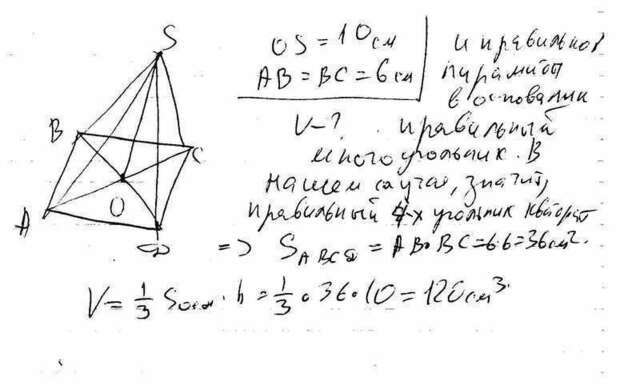 S
OS = 10 см
AB = BC = 6 см
и правильной
пирамиды
в основании
V - ? правильный
многоугольник. В
нашем случае, значит,
правильный 4-х угольник квадрат
B
C
A
O
D
=> S ABCD = AB·BC = 6·6 = 36 см².
V = 1/3 Sосн · h = 1/3 · 36 · 10 = 120 см³.